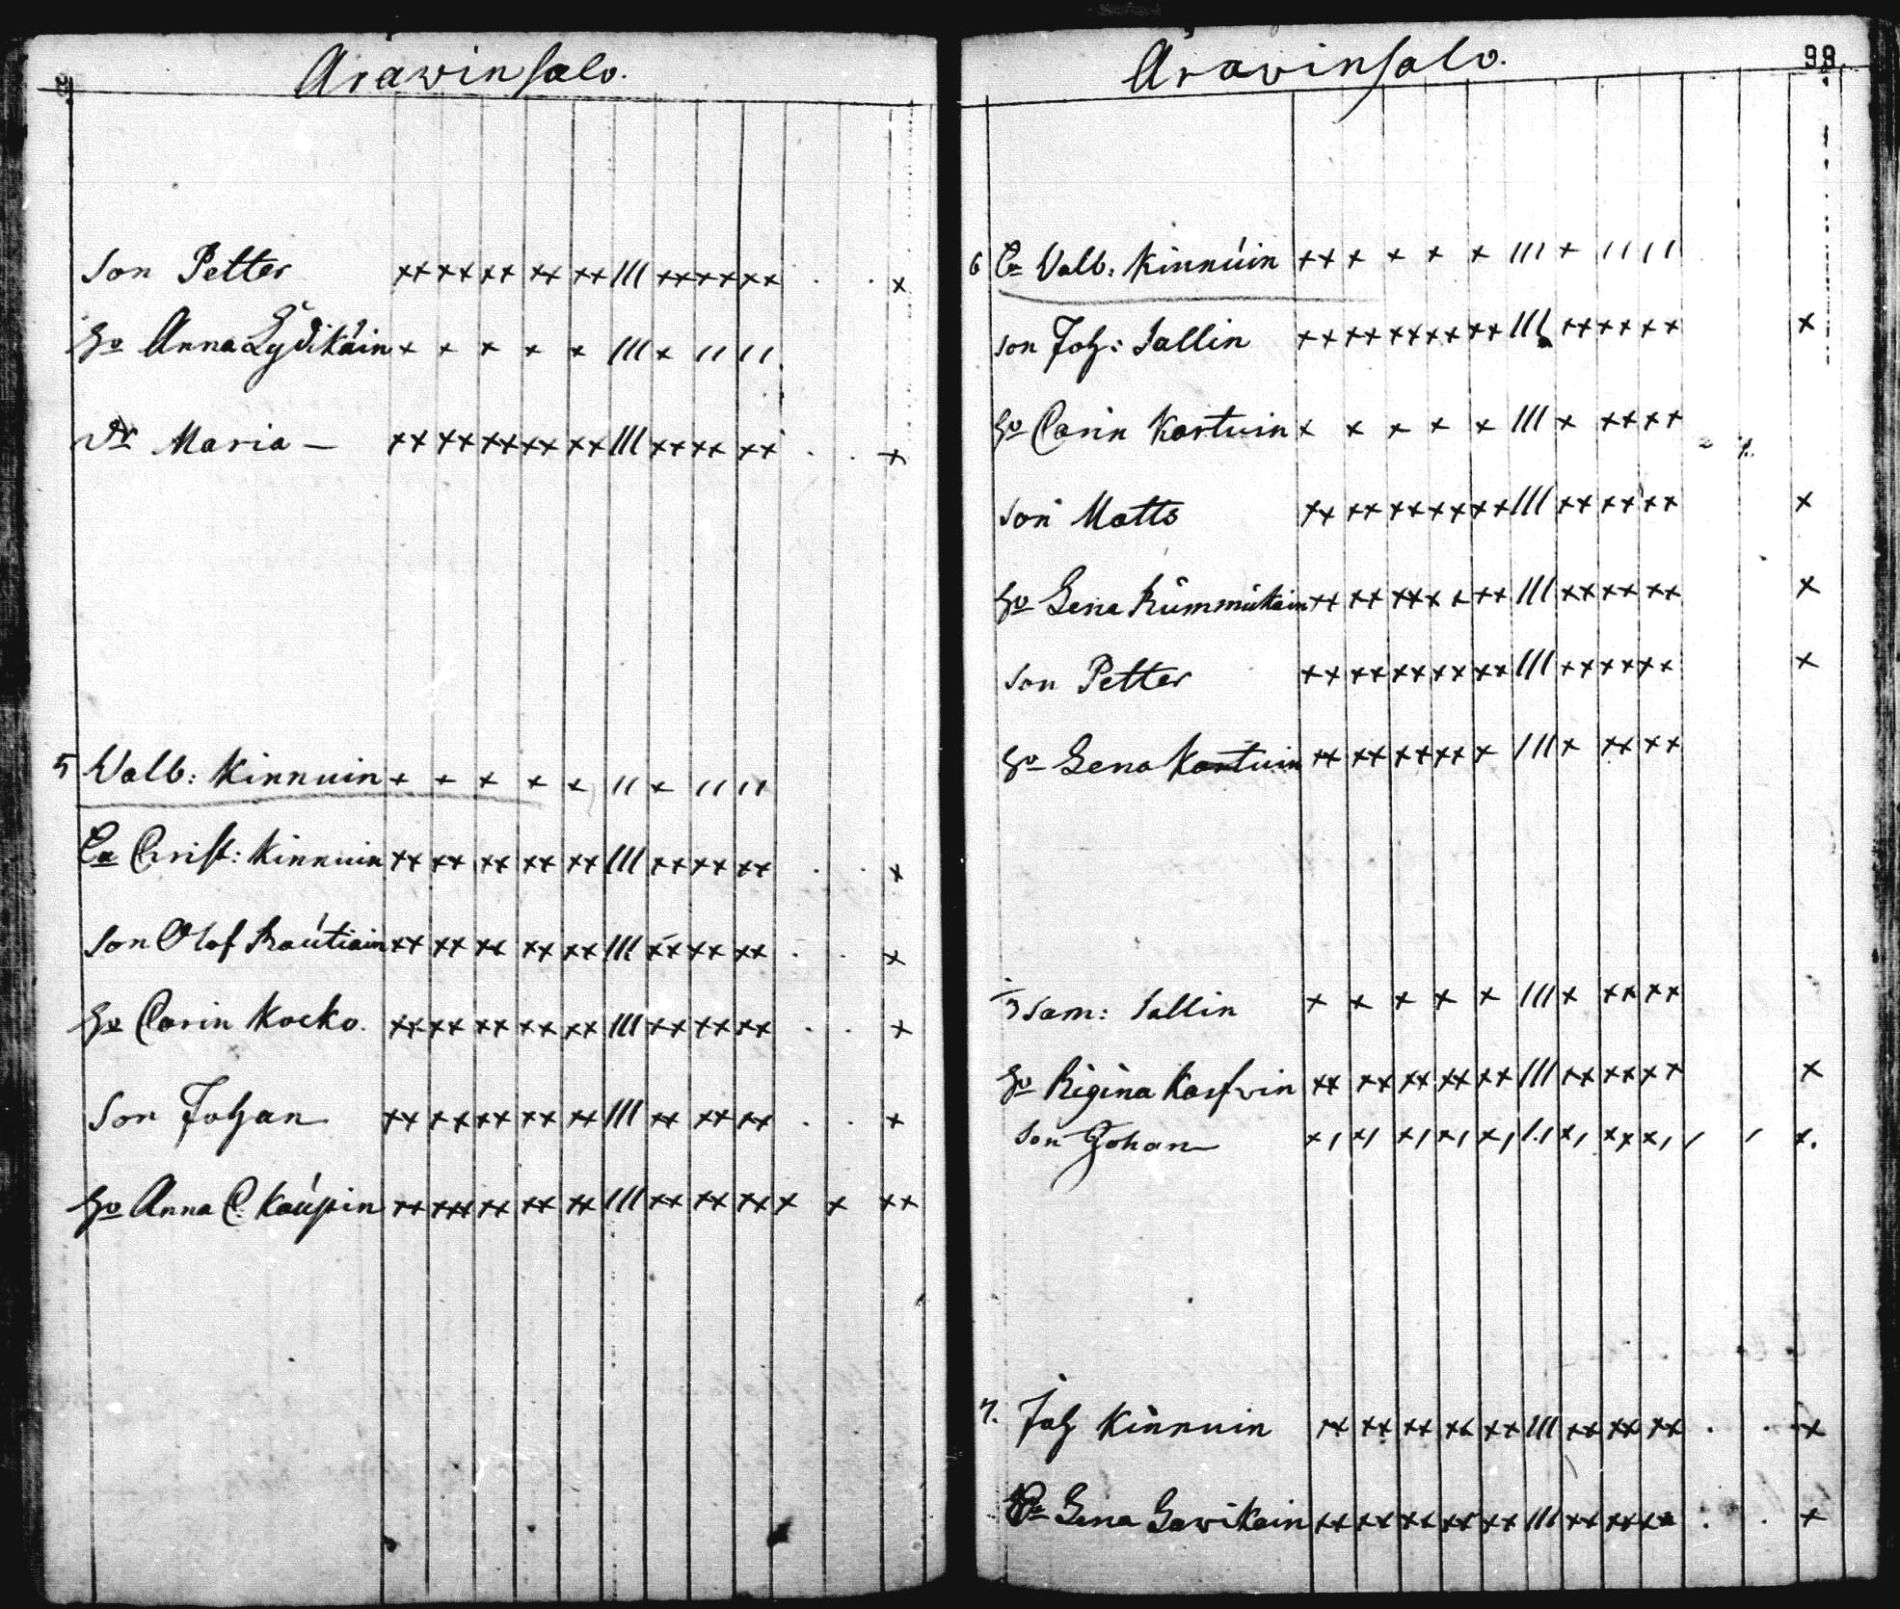 Arawinsalo.
Son Petter
Ho Anna Lydikäin
Dr Maria —
5 Walb: Kinnuin
Ea Christ: Kinnuin
Son Olof Rautiain
Ho Carin Kocko.
Son Johan
Ho Anna C. Kaupin
Arawinsalo. 99
6 Ea Valb: Kinnuin
Son Joh: Sallin
Ho Carin Kortuin
Son Matts
Ho Lena Rummukain
Son Petter
Ho Lena Kortuin
Sam: Sallin
Ho Regina Kasfwin
Son Johan
7. Joh Kinnuin
Lena Sawikain